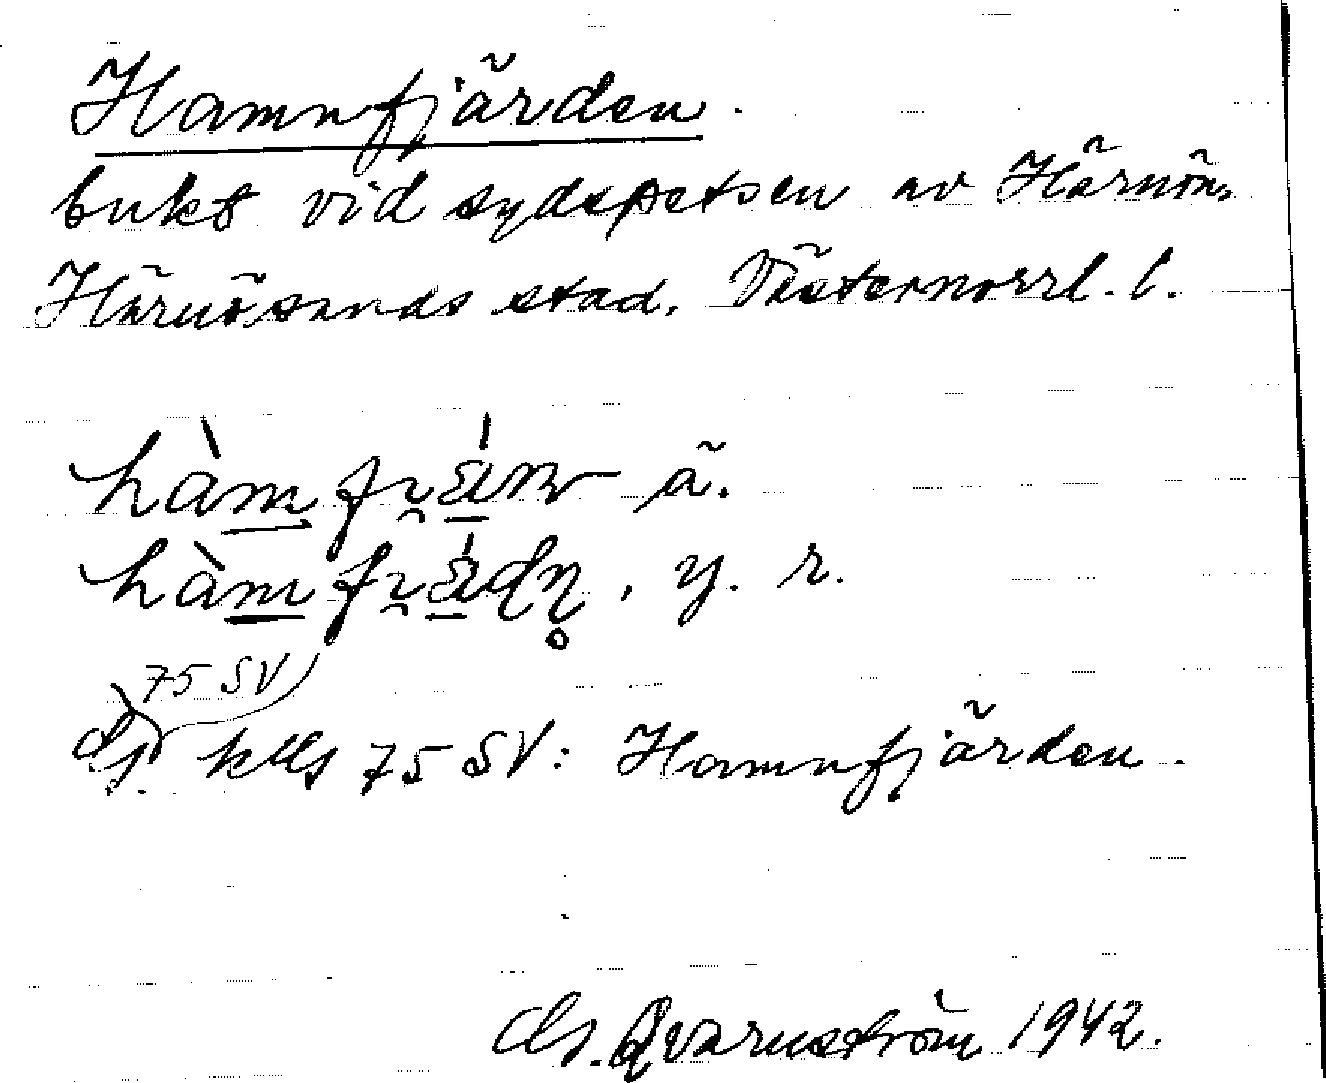 Hamnfjärden.
bukt vid sydspetsen av Härnön,
Härnösands stad, Västernorrl. l.
ä.
, y. r.
75 SV
klls 75 SV: Hamnfjärden.
Qvarnström 1942.